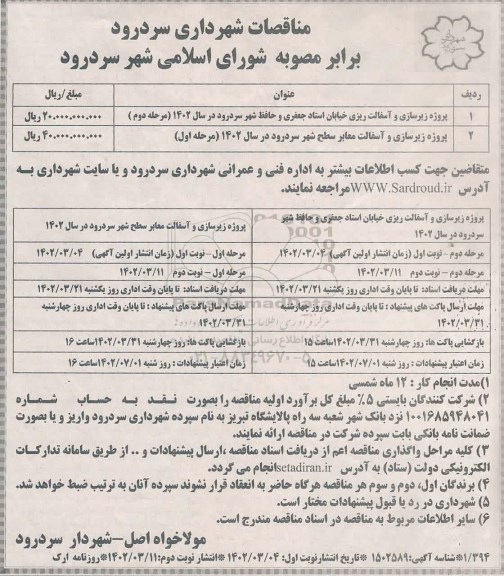 مناقصات شهرداری سردرود
برابر مصوبه شورای اسلامی شهر سردرود
ردیف عنوان مبلغ/ریال
۱ پروژه زیرسازی و آسفالت ریزی خیابان استاد جعفری و حافظ شهر سردرود در سال ۱۴۰۲ (مرحله دوم) ۲۰.۰۰۰.۰۰۰.۰۰۰ ریال
۲ پروژه زیرسازی و آسفالت معابر سطح شهر سردرود در سال ۱۴۰۲ (مرحله اول) ۴۰.۰۰۰.۰۰۰.۰۰۰ ریال
متقاضین جهت کسب اطلاعات بیشتر به اداره فنی و عمرانی شهرداری سردرود و یا سایت شهرداری به
آدرس WWW.Sardroud.ir مراجعه نمایند.
پروژه زیرسازی و آسفالت ریزی خیابان استاد جعفری و حافظ شهر سردرود در سال ۱۴۰۲ پروژه زیرسازی و آسفالت معابر سطح شهر سردرود در سال ۱۴۰۲
مرحله دوم - نوبت اول (زمان انتشار اولین آگهی) ۱۴۰۲/۰۳/۰۴ مرحله اول - نوبت اول (زمان انتشار اولین آگهی) ۱۴۰۲/۰۳/۰۴
مرحله دوم - نوبت دوم ۱۴۰۲/۰۳/۱۱ مرحله اول - نوبت دوم ۱۴۰۲/۰۳/۱۱
مهلت دریافت اسناد: تا پایان وقت اداری روز یکشنبه ۱۴۰۲/۰۳/۲۱ مهلت دریافت اسناد: تا پایان وقت اداری روز یکشنبه ۱۴۰۲/۰۳/۲۱
مهلت ارسال پاکت های پیشنهاد: تا پایان وقت اداری روز چهارشنبه ۱۴۰۲/۰۳/۳۱ مهلت ارسال پاکت های پیشنهاد: تا پایان وقت اداری روز چهارشنبه ۱۴۰۲/۰۳/۳۱
بازگشایی پاکت ها: روز چهارشنبه ۱۴۰۲/۰۳/۳۱ ساعت ۱۵ بازگشایی پاکت ها: روز چهارشنبه ۱۴۰۲/۰۳/۳۱ ساعت ۱۶
زمان اعتبار پیشنهادات: روز شنبه ۱۴۰۲/۰۷/۰۱ ساعت ۱۵ زمان اعتبار پیشنهادات: روز شنبه ۱۴۰۲/۰۷/۰۱ ساعت ۱۶
۱)مدت انجام کار: ۱۲ ماه شمسی
۲) شرکت کنندگان بایستی ۵٪ مبلغ کل برآورد اولیه مناقصه را بصورت نقد به حساب شماره
۱۰۰۱۶۸۵۹۴۸۰۴۱ نزد بانک شهر شعبه سه راه پالایشگاه تبریز به نام سپرده شهرداری سردرود واریز و یا بصورت
ضمانت نامه بانکی بابت سپرده شرکت در مناقصه ارائه نمایند.
۳) کلیه مراحل واگذاری مناقصه اعم از دریافت اسناد مناقصه، ارسال پیشنهادات و .. از طریق سامانه تدارکات
الکترونیکی دولت (ستاد) به آدرس setadiran.ir انجام می گردد.
۴) برندگان اول، دوم و سوم هر مناقصه هرگاه حاضر به انعقاد قرار نشوند سپرده آنان به ترتیب ضبط خواهد شد.
۵) شهرداری در رد یا قبول پیشنهادات مختار است.
۶) سایر اطلاعات مربوط به مناقصه در اسناد مناقصه مندرج است.
مولاخواه اصل-شهردار سردرود
۱/۳۹۴*شناسه آگهی: ۱۵۰۲۵۸۹ *تاریخ انتشار نوبت اول: ۱۴۰۲/۰۳/۰۴ *انتشار نوبت دوم: ۱۴۰۲/۰۳/۱۱*روزنامه ارک